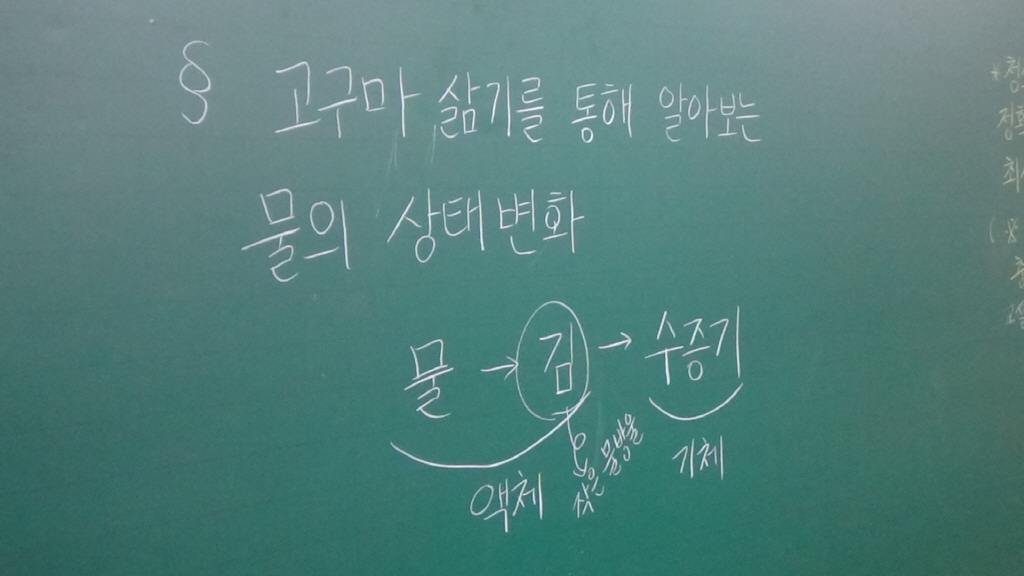 § 고구마 삶기를 통해 알아보는
물의 상태변화
물 → 김 → 수증기
작은 물방울
액체
기체